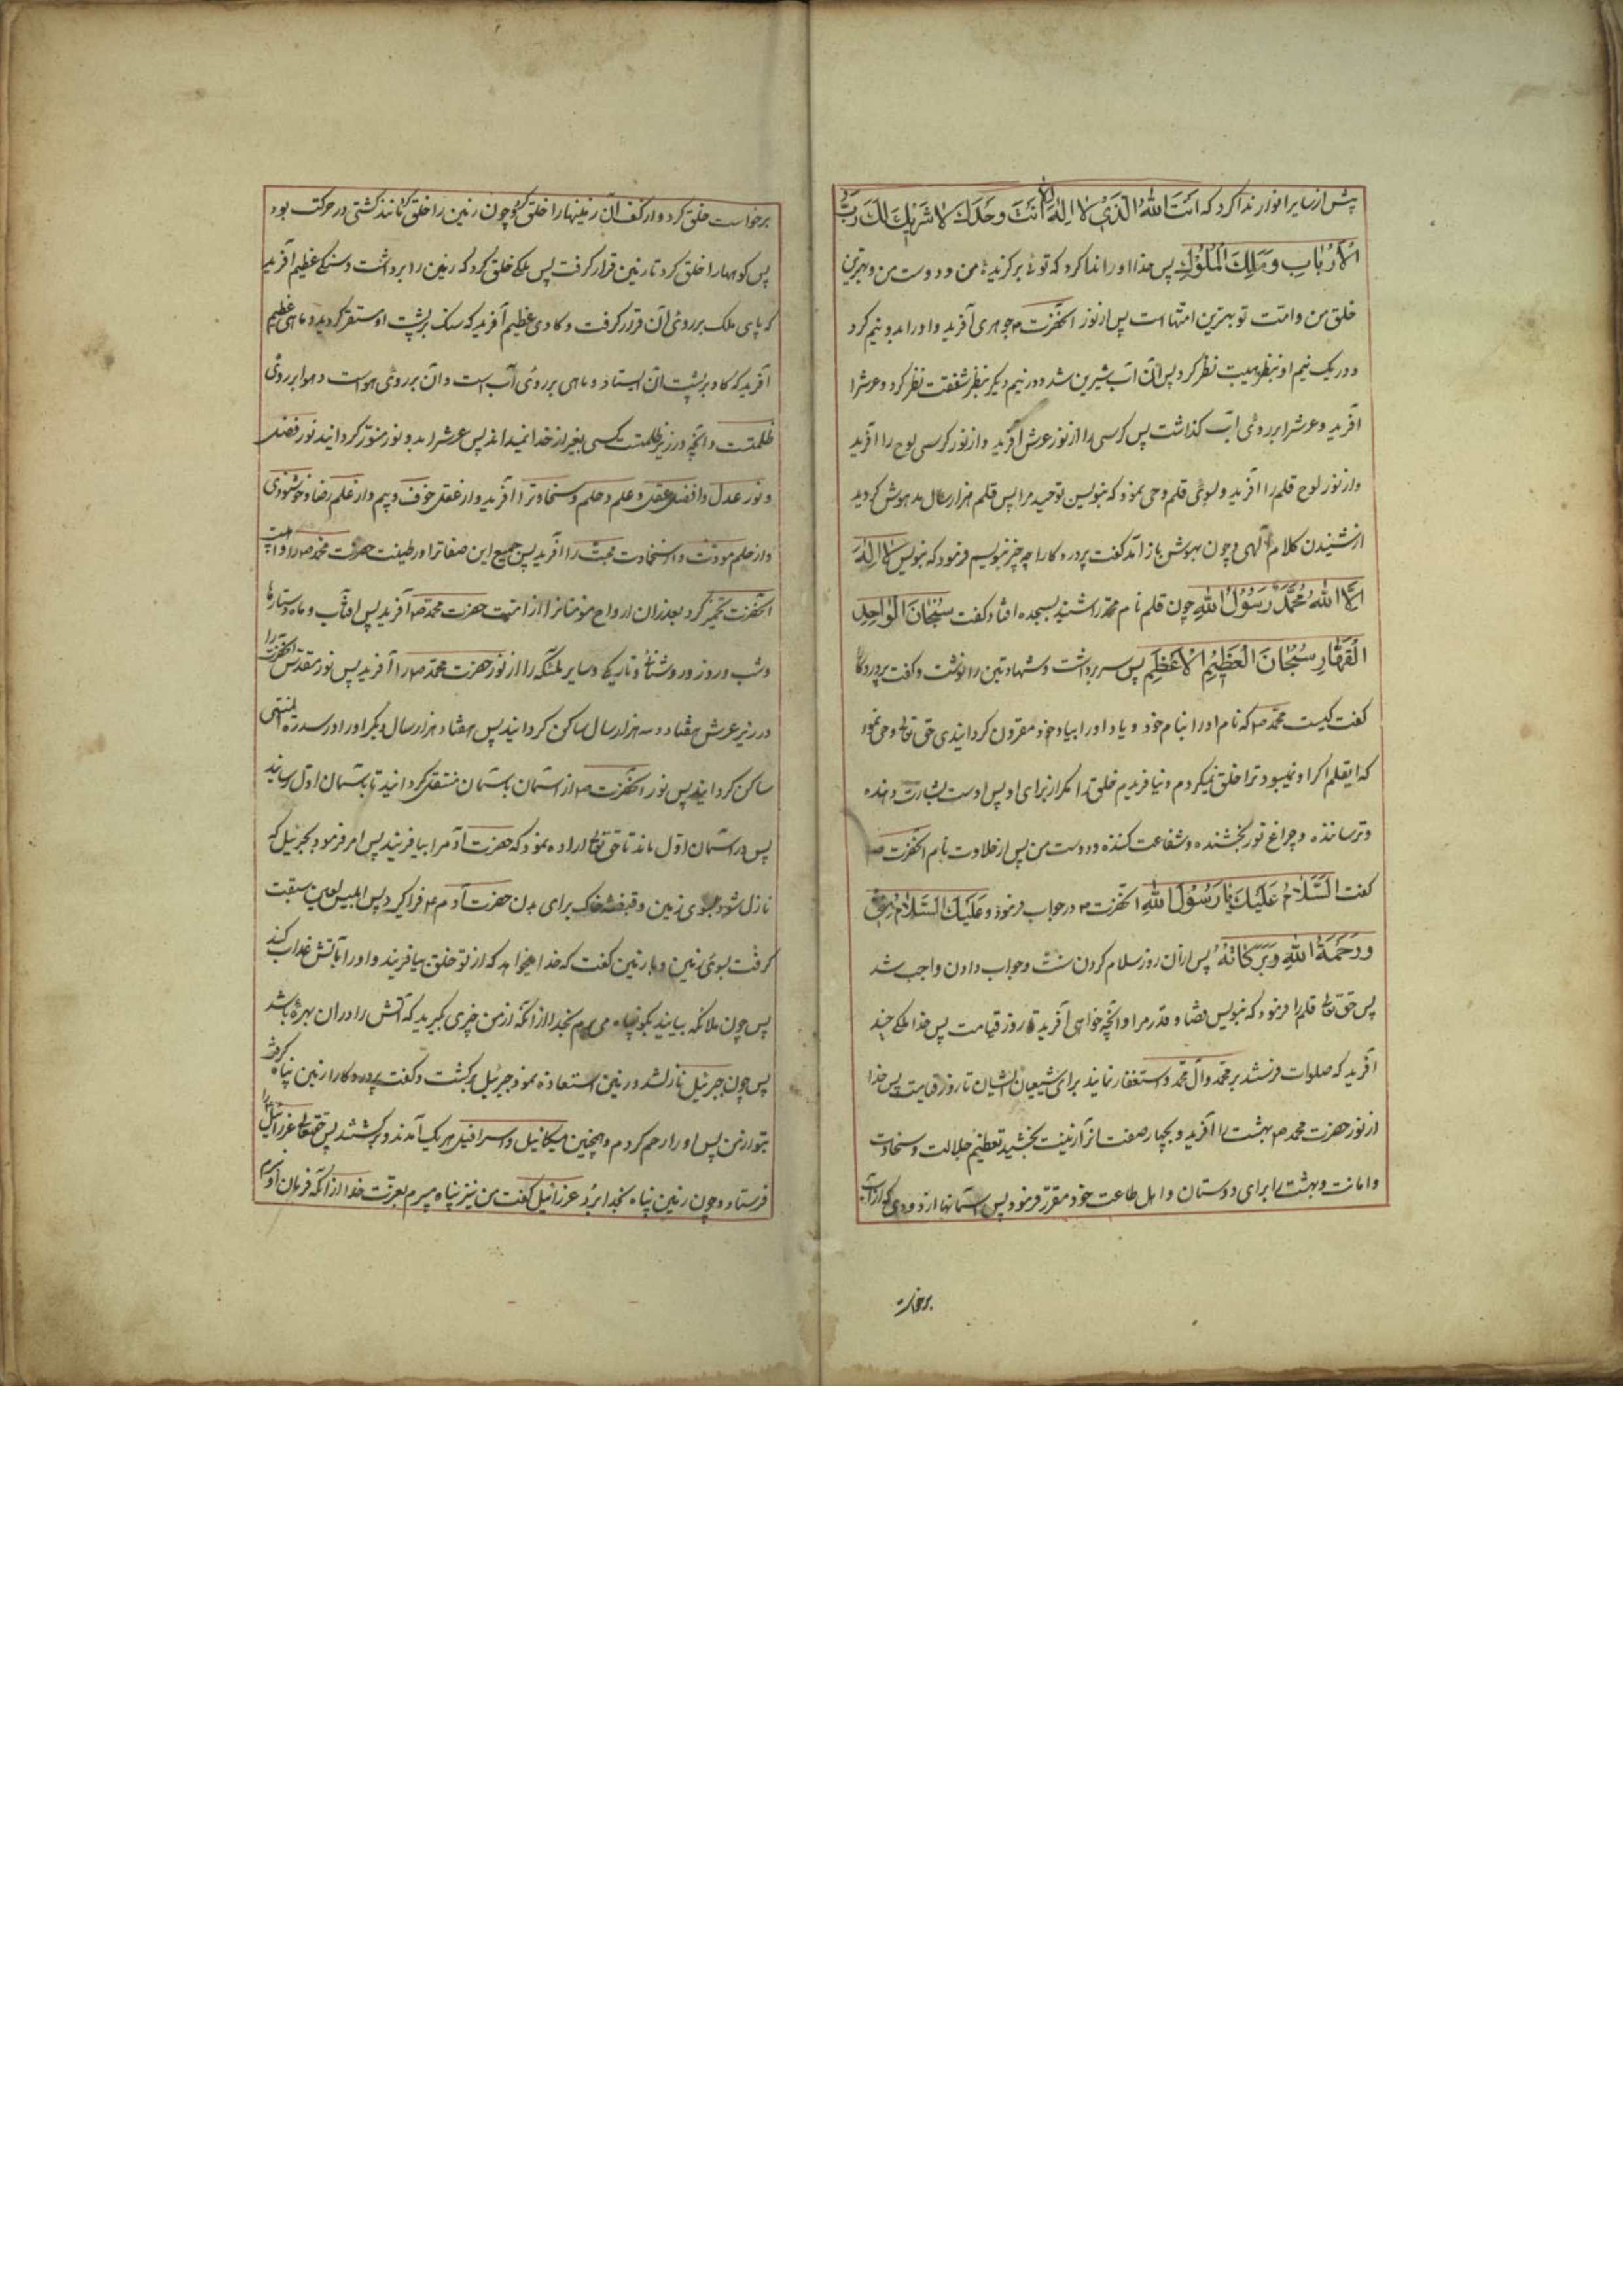 پیش از سایر انوار ندا کرد که اَنتَ اللهُ الَّذی لا اِلٰهَ اِلّا اَنتَ وَحدَكَ لا شَریكَ لَكَ رَبُّ
الاَربابِ وَمَلِكَ المُلُوكِ پس خدا او را ندا کرد که توئی برگزیدۀ من و دوست من و بهترین
خلق من و امت تو بهترین امتها است پس از نور آنحضرت ص جوهری آفرید و او را بدو نیم کرد
و در یک نیم او بنظر هیبت نظر کرد پس آن آب شیرین شد و در نیم دیگر بنظر شفقت نظر کرد و عرشرا
آفرید و عرشرا بر روی آب گذاشت پس کرسی را از نور عرش آفرید و از نور کرسی لوح را آفرید
و از نور لوح قلم را آفرید و بسوی قلم وحی نمود که بنویس توحید مرا پس قلم هزار سال مدهوش گردید
از شنیدن کلام آلهی و چون بهوش باز آمد گفت پروردگارا چه چیز بنویسم فرمود که بنویس لا اِلٰهَ
اِلَّا اللهُ مُحَمَّدٌ رَسُولُ اللهِ چون قلم نام محمد را شنید بسجده افتاد و گفت سُبحانَ الواحِدِ
القَهّارِ سُبحانَ العَظیمِ الاَعظَمِ پس سر برداشت و شهادتین را نوشت و گفت پروردگارا
گفت کیست محمد ص که نام او را بنام خود و یاد او را بیاد خود مقرون گردانیدی حق تعالی وحی نمود
که ایقلم اگر او نمیبود ترا خلق نمیکردم و نیافریدم خلق را مگر از برای او پس اوست بشارت دهنده
و ترساننده و چراغ نور بخشنده و شفاعت کننده و دوست من پس از حلاوت نام آنحضرت ص
گفت اَلسَّلامُ عَلَیكَ یا رَسُولَ اللهِ آنحضرت ص در جواب فرمود و عَلَیكَ السَّلامُ مِنّی
وَرَحمَةُ اللهِ وَبَرَكاتُهُ پس از آن روز سلام کردن سنت و جواب دادن واجب شد
پس حق تعالی قلم را فرمود که بنویس قضا و قدر مرا و آنچه خواهی آفرید تا روز قیامت پس خدا ملکی چند
آفرید که صلوات فرستند بر محمد و آل محمد و استغفار نمایند برای شیعیان ایشان تا روز قیامت پس خدا
از نور حضرت محمد ص بهشت را آفرید و بچهار صفت انرا زینت بخشید تعظیم و جلالت و سخاوت
و امانت و بهشت را برای دوستان و اهل طاعت خود مقرر فرمود پس آسمانها را از دودی که از آب
برخاست
برخواست خلق کرد و از کف آن زمینها را خلق کرد و چون زمین را خلق کرد مانند کشتی در حرکت بود
پس کوهها را خلق کرد تا زمین قرار گرفت پس ملکی خلق کرد که زمین را برداشت و سنگی عظیم آفرید
که پای ملک بر روی آن قرار گرفت و گاوی عظیم آفرید که سنگ بر پشت او مستقر گردید و ماهی عظیم
آفرید که گاو بر پشت آن ایستاد و ماهی بر روی آب است و آن بر روی هواست و هوا بر روی
ظلمتست و آنچه در زیر ظلمتست کسی بغیر از خدا نمیداند پس عرشرا بدو نور منور گردانید نور فضل
و نور عدل و از فضل عقل و علم و حلم و سخاوترا آفرید و از عقل خوف و بیم و از علم رضا و خوشنودی
و از حلم مودت و از سخاوت محبت را آفرید پس جمیع این صفاترا در طینت حضرت محمد ص و اهلبیت
آنحضرت تخمیر کرد بعد از آن ارواح مؤمنانرا از امت حضرت محمد ص آفرید پس آفتاب و ماه و ستارها
و شب و روز و روشنائی و تاریکی و سایر ملئکه را از نور حضرت محمد ص را آفرید پس نور مقدس آنحضرت را
در زیر عرش هفتاد و سه هزار سال ساکن گردانید پس هفتاد هزار سال دیگر او را در سدرة المنتهی
ساکن گردانید پس نور آنحضرت ص از آسمان بآسمان منتقل گردانید تا بآسمان اول رسانید
پس در آسمان اول ماند تا حق تعالی اراده نمود که حضرت آدم را بیافریند پس امر فرمود جبرئیل که
نازل شود بسوی زمین و قبضۀ خاک برای بدن حضرت آدم ع فرا گیرد پس ابلیس لعین سبقت
گرفت بسوی زمین و با زمین گفت که خدا میخواهد که از تو خلقی بیافریند و او را بآتش عذاب کند
پس چون ملائکه بیایند بگو پناه می برم بخدا از آنکه از من چیزی بگیرید که آتش را در آن بهرۀ باشد
پس چون جبرئیل نازلشد و زمین استعاذه نمود جبرئیل برگشت و گفت پروردگارا زمین پناه گرفت
بتو از من پس او را رحم کردم و همچنین میکائیل و اسرافیل هریک آمدند و برگشتند پس حقتعالی عزرائیل را
فرستاد و چون زمین پناه بخدا برد عزرائیل گفت من نیز پناه میبرم بعزت خدا از آنکه فرمان او نبرم